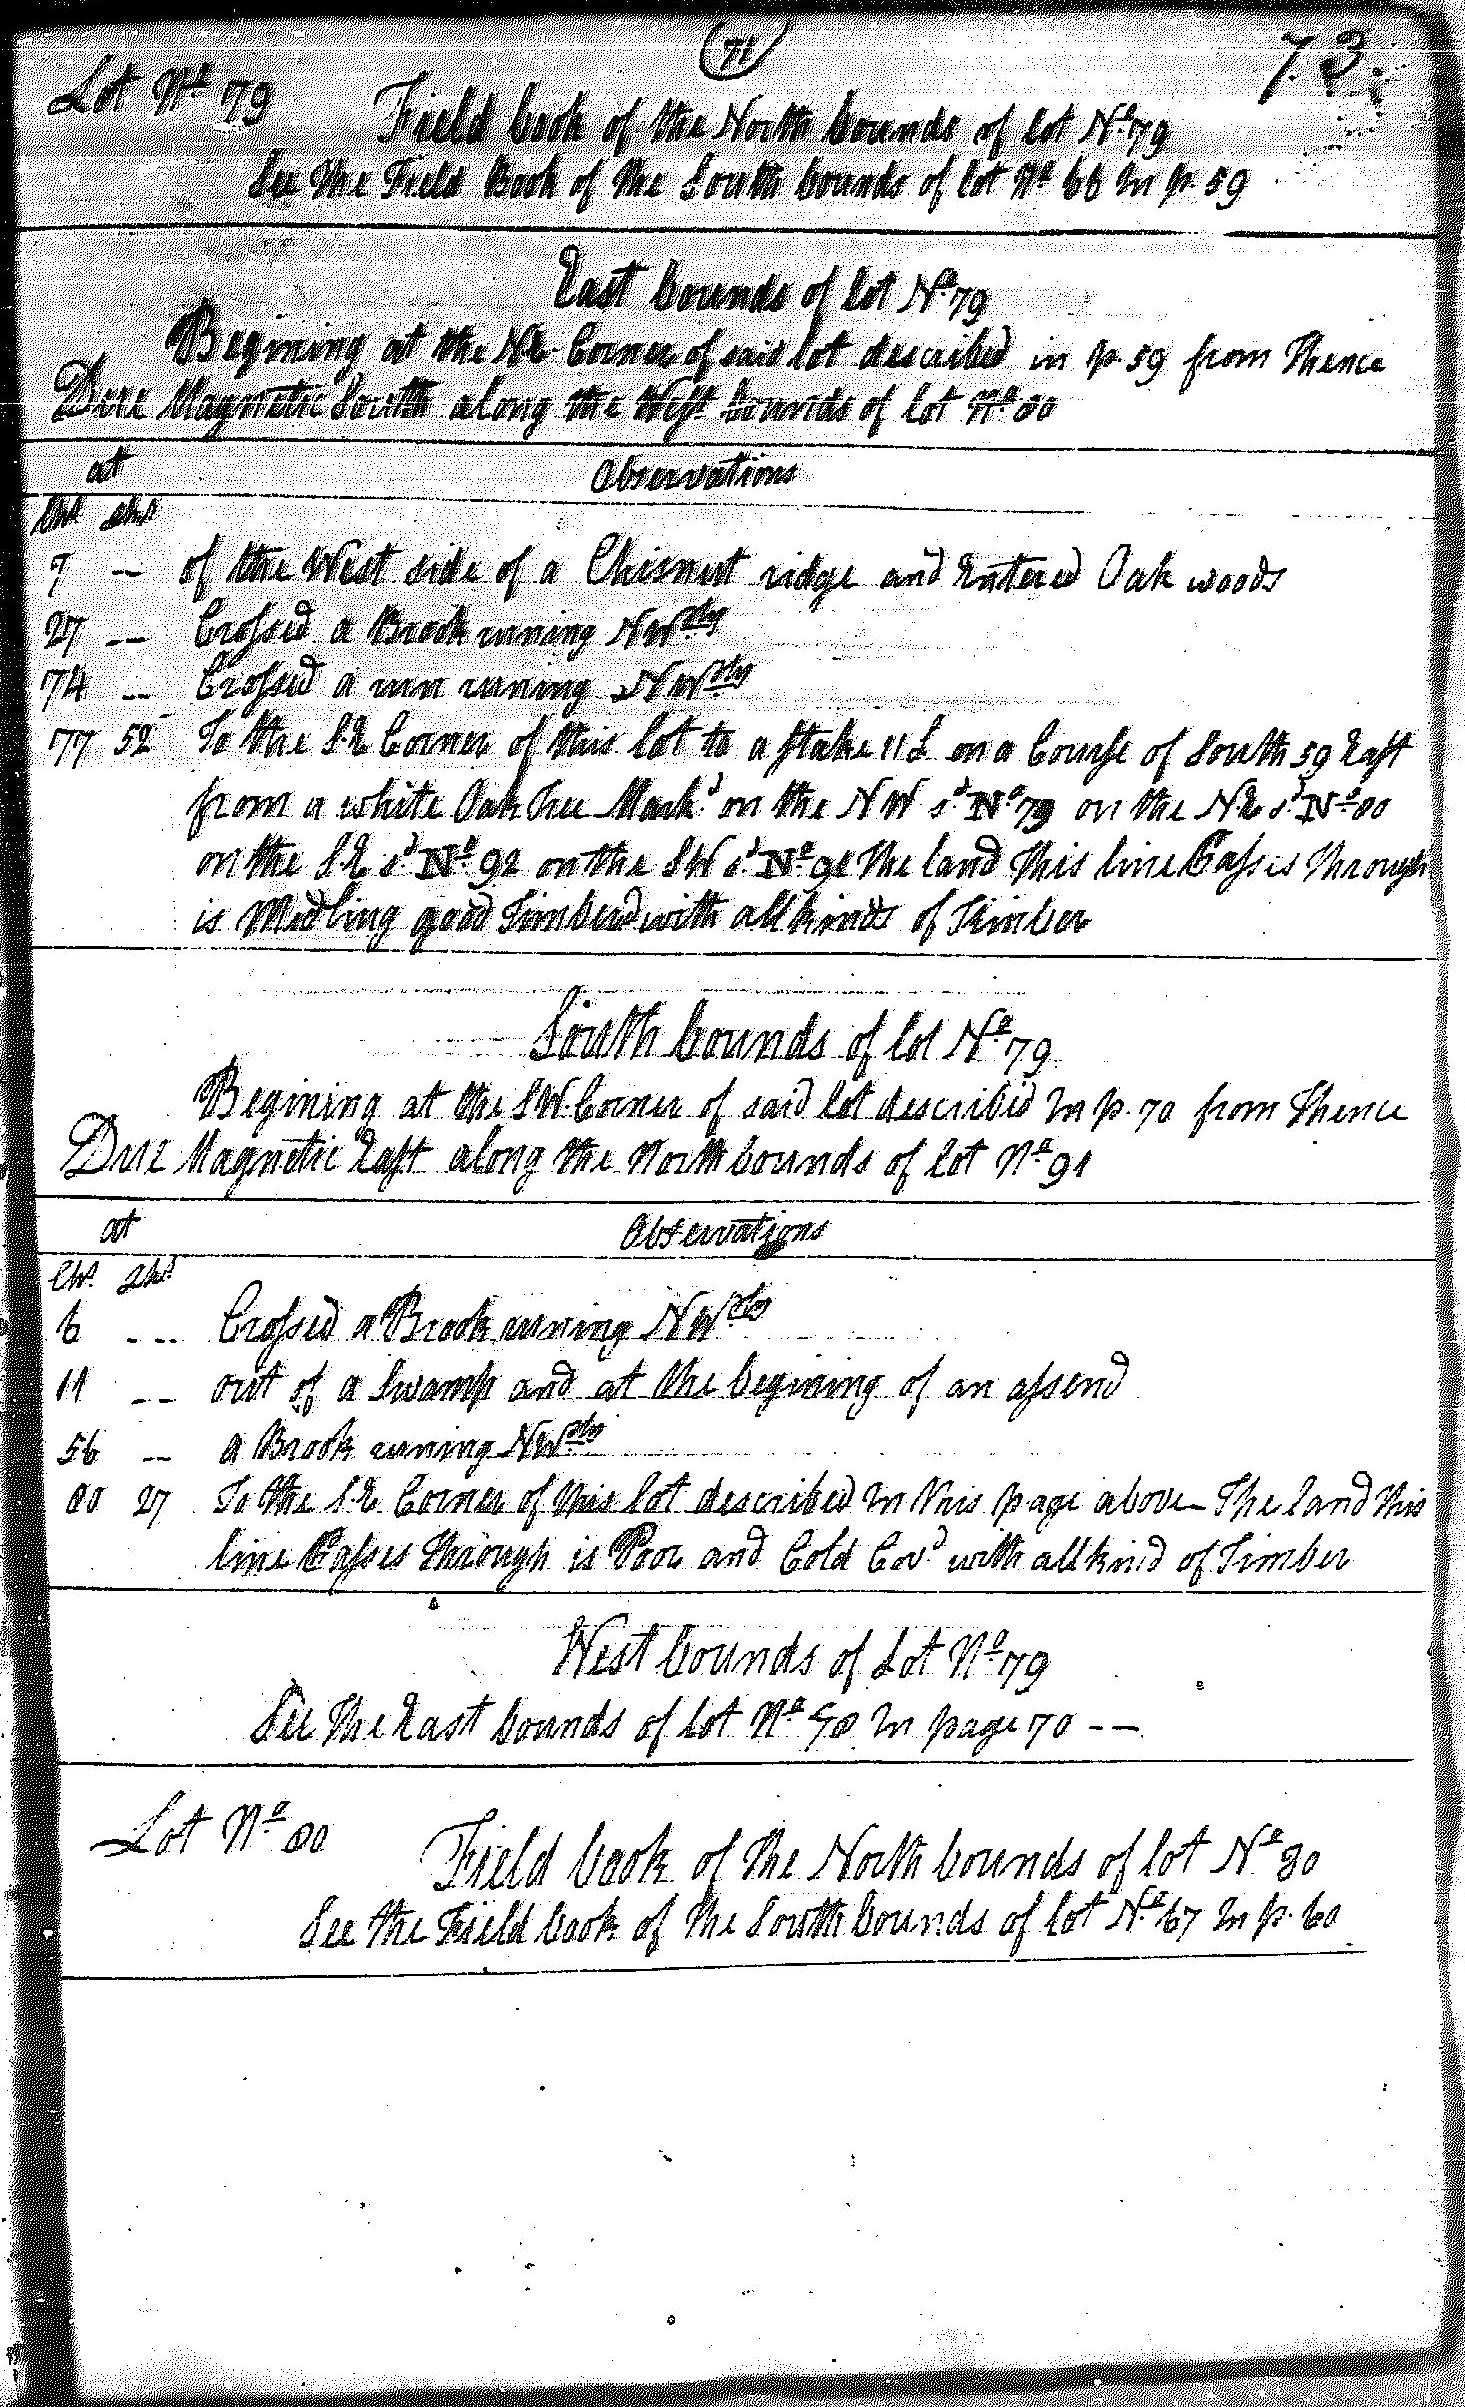 71
73.
Lot Nº 79
Field book of the North bounds of lot Nº 79
See the Field Book of the South bounds of lot Nº 66 In p. 59
East bounds of lot Nº 79
Begining at the N.E. Corner of said lot described in p. 59 from Thence
Due Magnetic South along the West bounds of lot Nº 80
at Observations
Chs. Lks.
7 -- of the West side of a Chisnut ridge and Entered Oak woods
27 -- Crossed a Brook runing NWrly
74 -- Crossed a run runing NWrly
77 52 To the S.E Corner of this lot to a stake 11 L on a Course of South 59 East
from a white Oak Tree Markd on the N W sd Nº 79 on the N.E sd Nº 80
on the S.E sd Nº 92 on the S W sd Nº 91 The land this line Passes through
is Midling good Timberd with all kinds of Timber
South bounds of lot Nº 79
Begining at the S.W. Corner of said lot described In p. 70 from Thence
Due Magnetic East along the North bounds of lot Nº 91
at Observations
Chs. Lks.
6 -- Crossed a Brook runing NWrly
11 -- out of a Swamp and at the begining of an assend
56 -- a Brook runing NWrly
80 27 To the S.E Corner of this lot described In this page above The land this
line Passes through is Poor and Cold Covd with all kind of Timber
West bounds of Lot Nº 79
See the East bounds of lot Nº 78 In page 70 --
Lot Nº 80
Field book of the North bounds of lot Nº 80
See the Field book of the South bounds of lot Nº 67 In p. 60